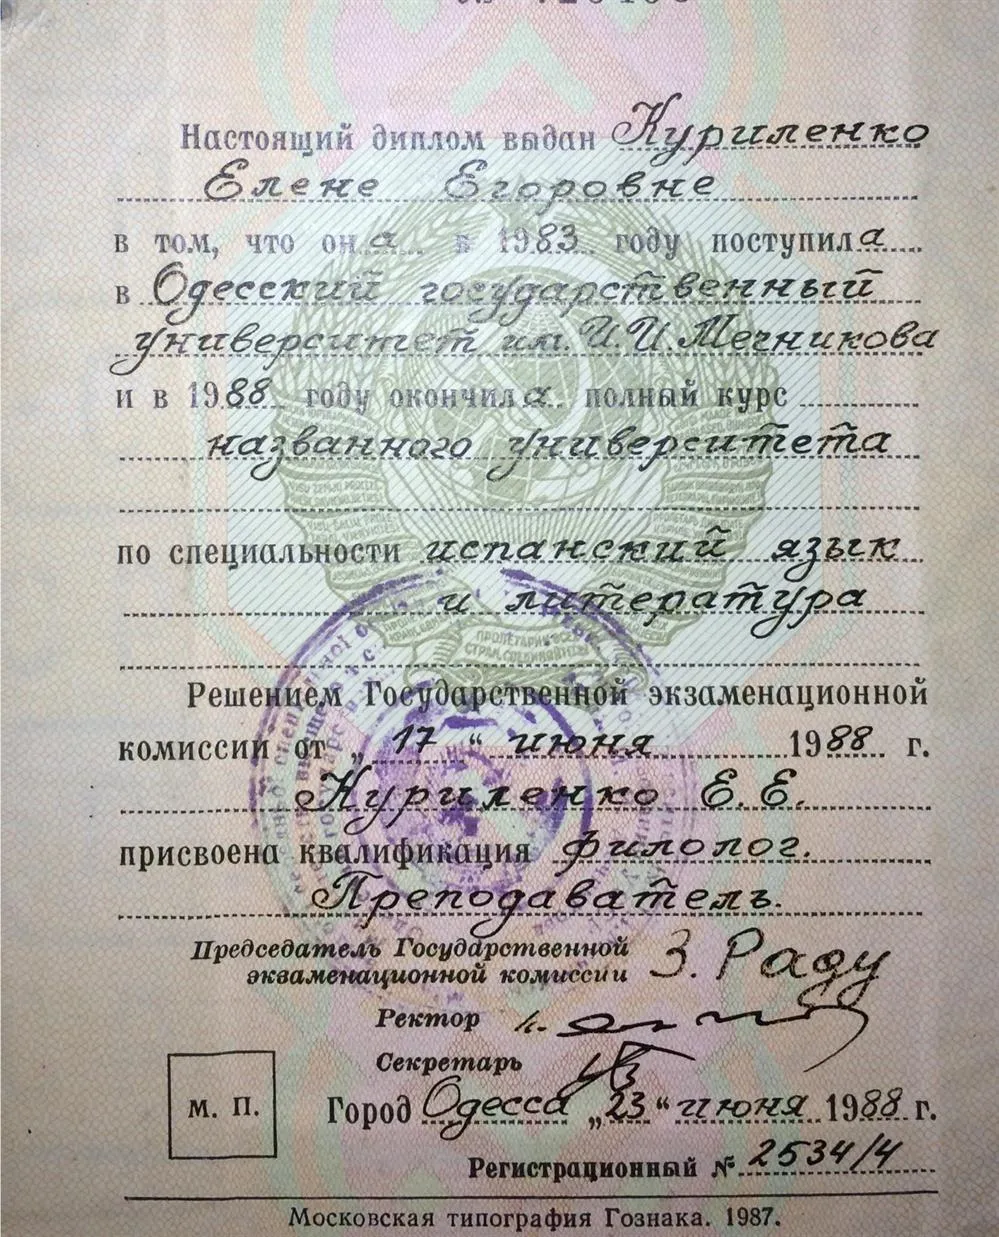 Настоящий диплом выдан Куриленко
Елене Егоровне
в том, что она в 1983 году поступила
в Одесский государственный
университет им. И.И. Мечникова
и в 1988 году окончила полный курс
названного университета
по специальности испанский язык
и литература
Решением Государственной экзаменационной
комиссии от „17“ июня 1988 г.
Куриленко Е.Е.
присвоена квалификация филолог.
Преподаватель.
Председатель Государственной
экзаменационной комиссии З. Раду
Ректор
Секретарь
М. П.
Город Одесса „23“ июня 1988 г.
Регистрационный № 2534/4
Московская типография Гознака. 1987.